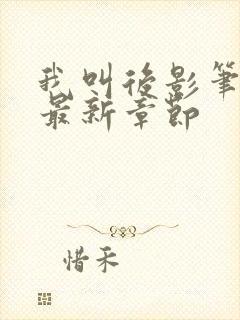 我叫後影筆
最新章節
惜禾